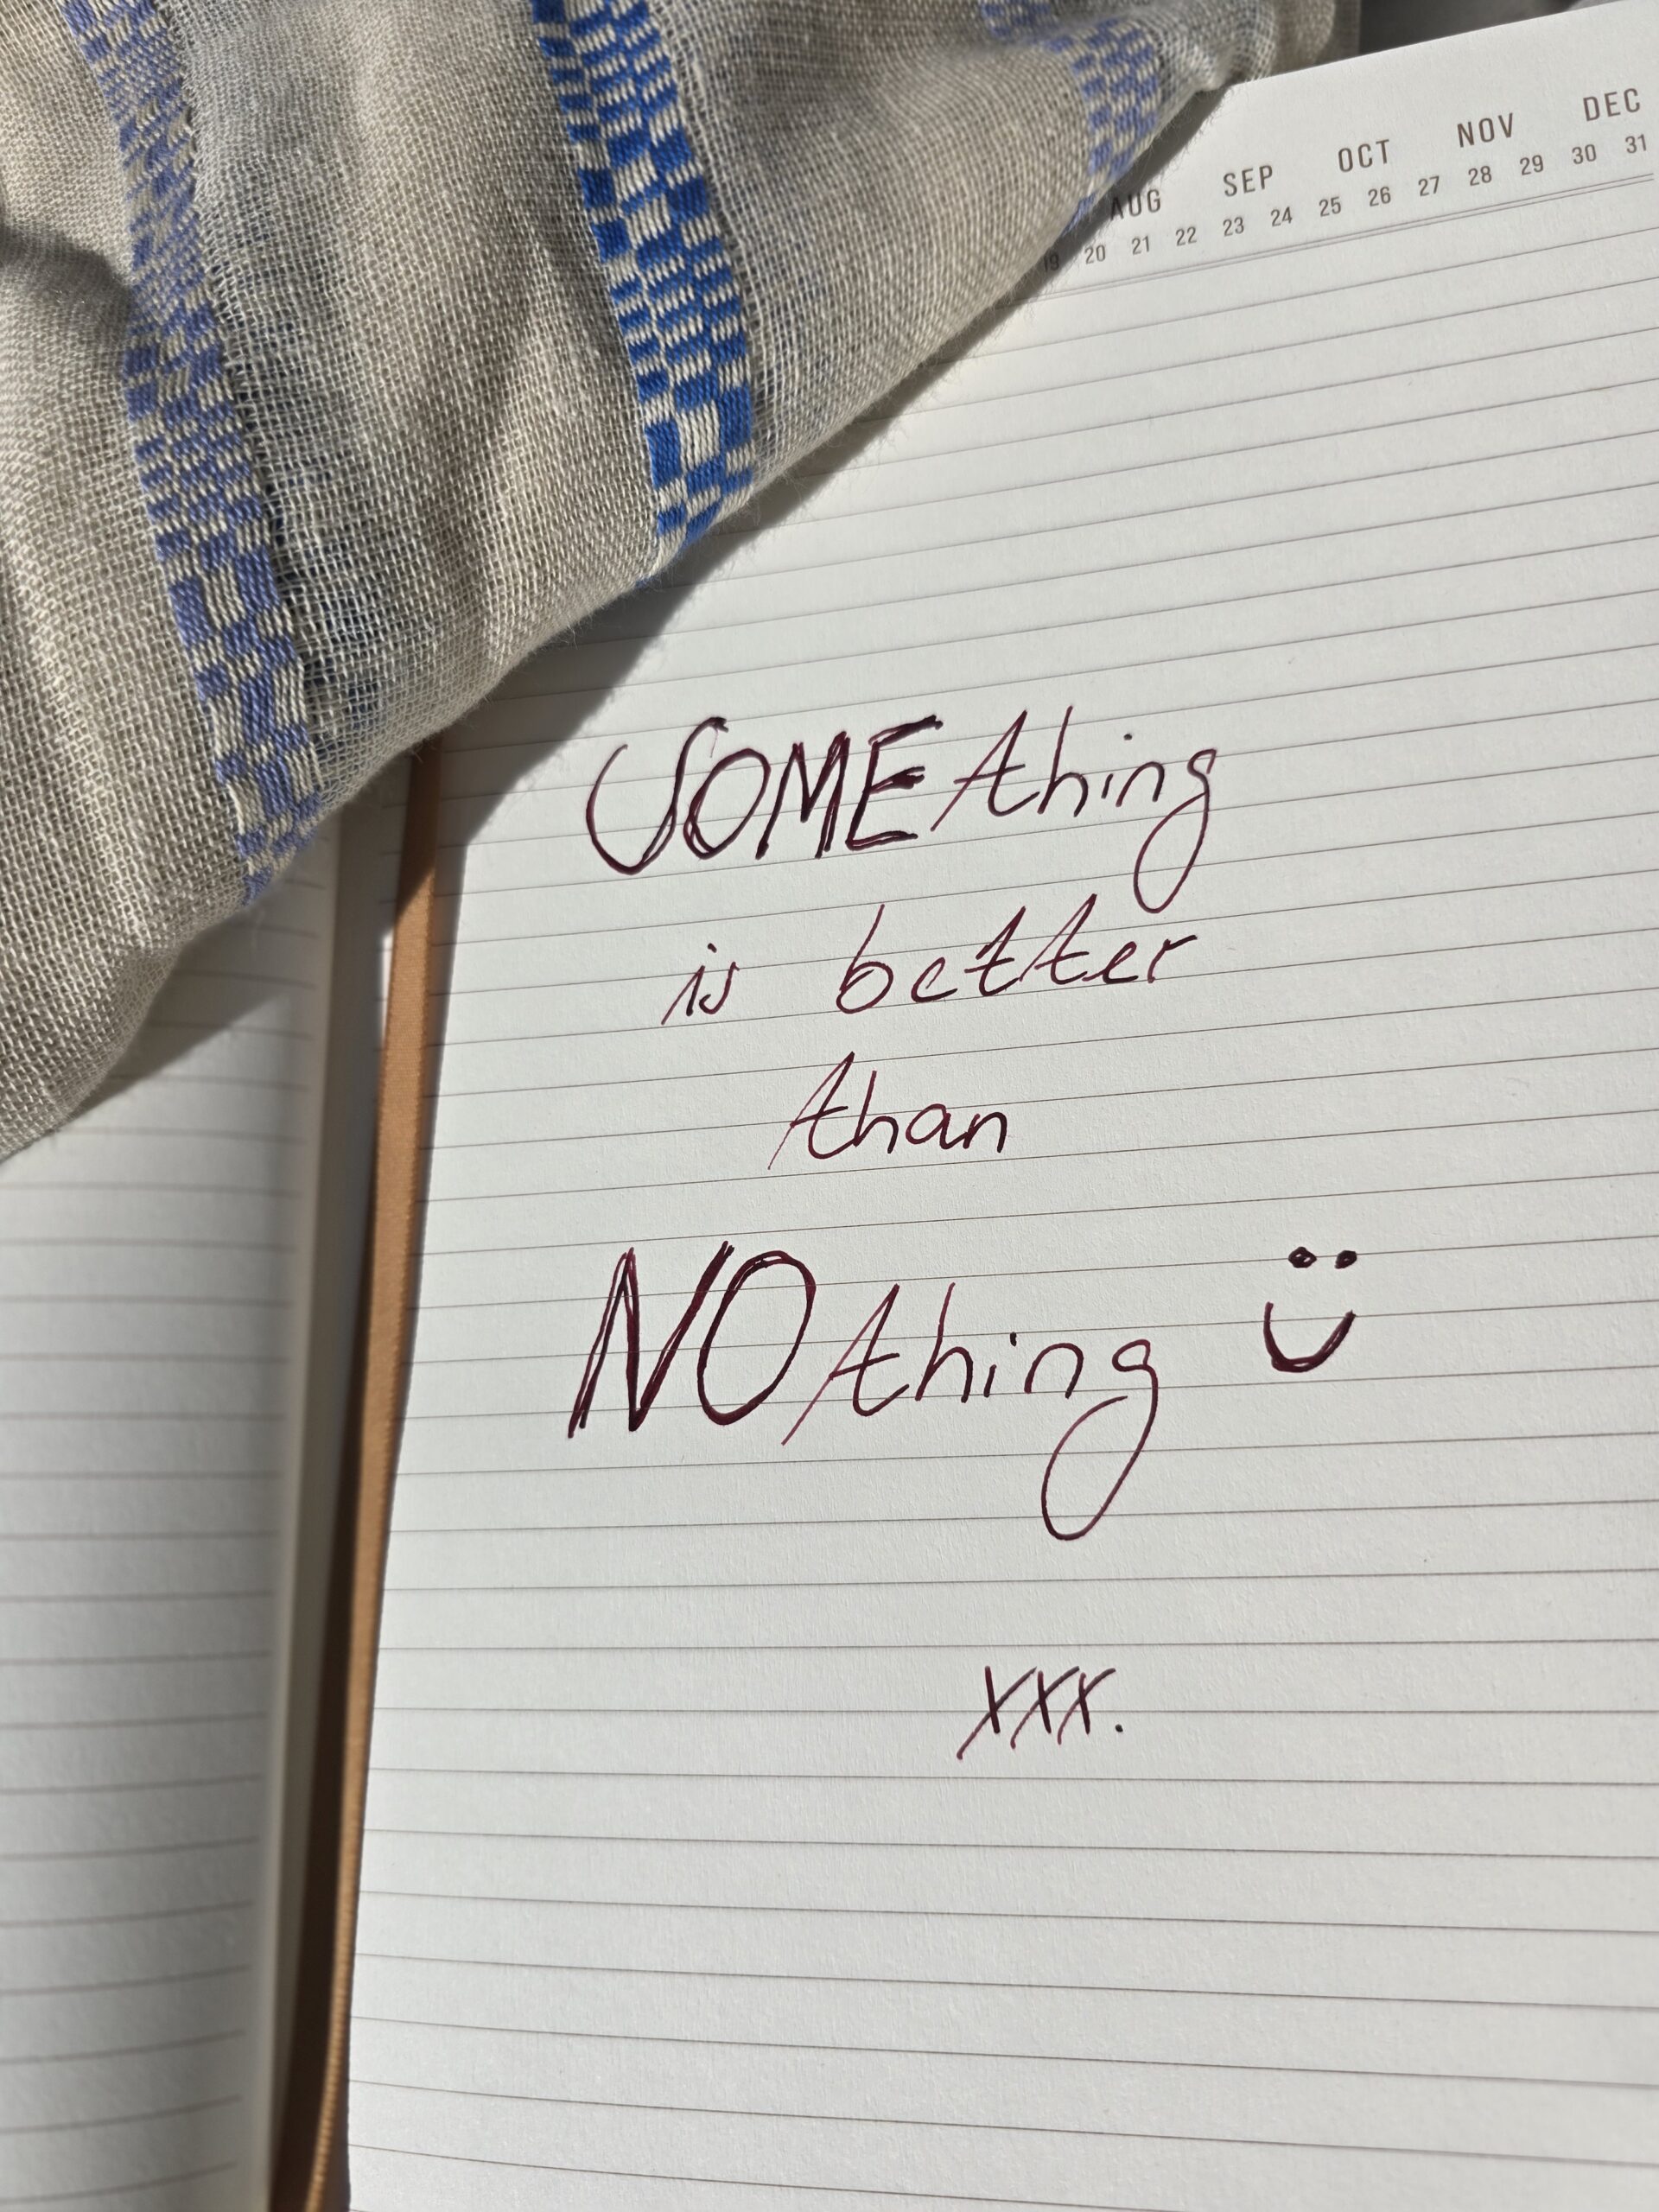 AUG SEP OCT NOV DEC
19 20 21 22 23 24 25 26 27 28 29 30 31
SOMEthing
is better
than
NOthing
xxx.